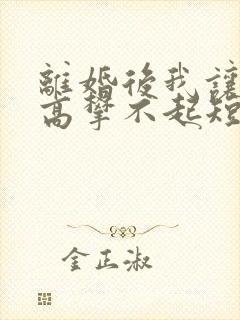 離婚後我讓
高攀不起短
金正淑